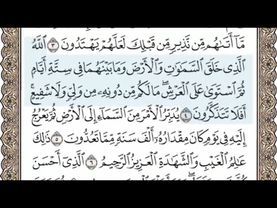 مَّآ أَتَىٰهُم مِّن نَّذِيرٍ مِّن قَبْلِكَ لَعَلَّهُمْ يَهْتَدُونَ ٣ ٱللَّهُ
ٱلَّذِى خَلَقَ ٱلسَّمَٰوَٰتِ وَٱلْأَرْضَ وَمَا بَيْنَهُمَا فِى سِتَّةِ أَيَّامٍ
ثُمَّ ٱسْتَوَىٰ عَلَى ٱلْعَرْشِ مَا لَكُم مِّن دُونِهِۦ مِن وَلِىٍّ وَلَا شَفِيعٍ
أَفَلَا تَتَذَكَّرُونَ ٤ يُدَبِّرُ ٱلْأَمْرَ مِنَ ٱلسَّمَآءِ إِلَى ٱلْأَرْضِ ثُمَّ يَعْرُجُ
إِلَيْهِ فِى يَوْمٍ كَانَ مِقْدَارُهُۥٓ أَلْفَ سَنَةٍ مِّمَّا تَعُدُّونَ ٥
ذَٰلِكَ عَٰلِمُ ٱلْغَيْبِ وَٱلشَّهَٰدَةِ ٱلْعَزِيزُ ٱلرَّحِيمُ ٦ ٱلَّذِىٓ أَحْسَنَ